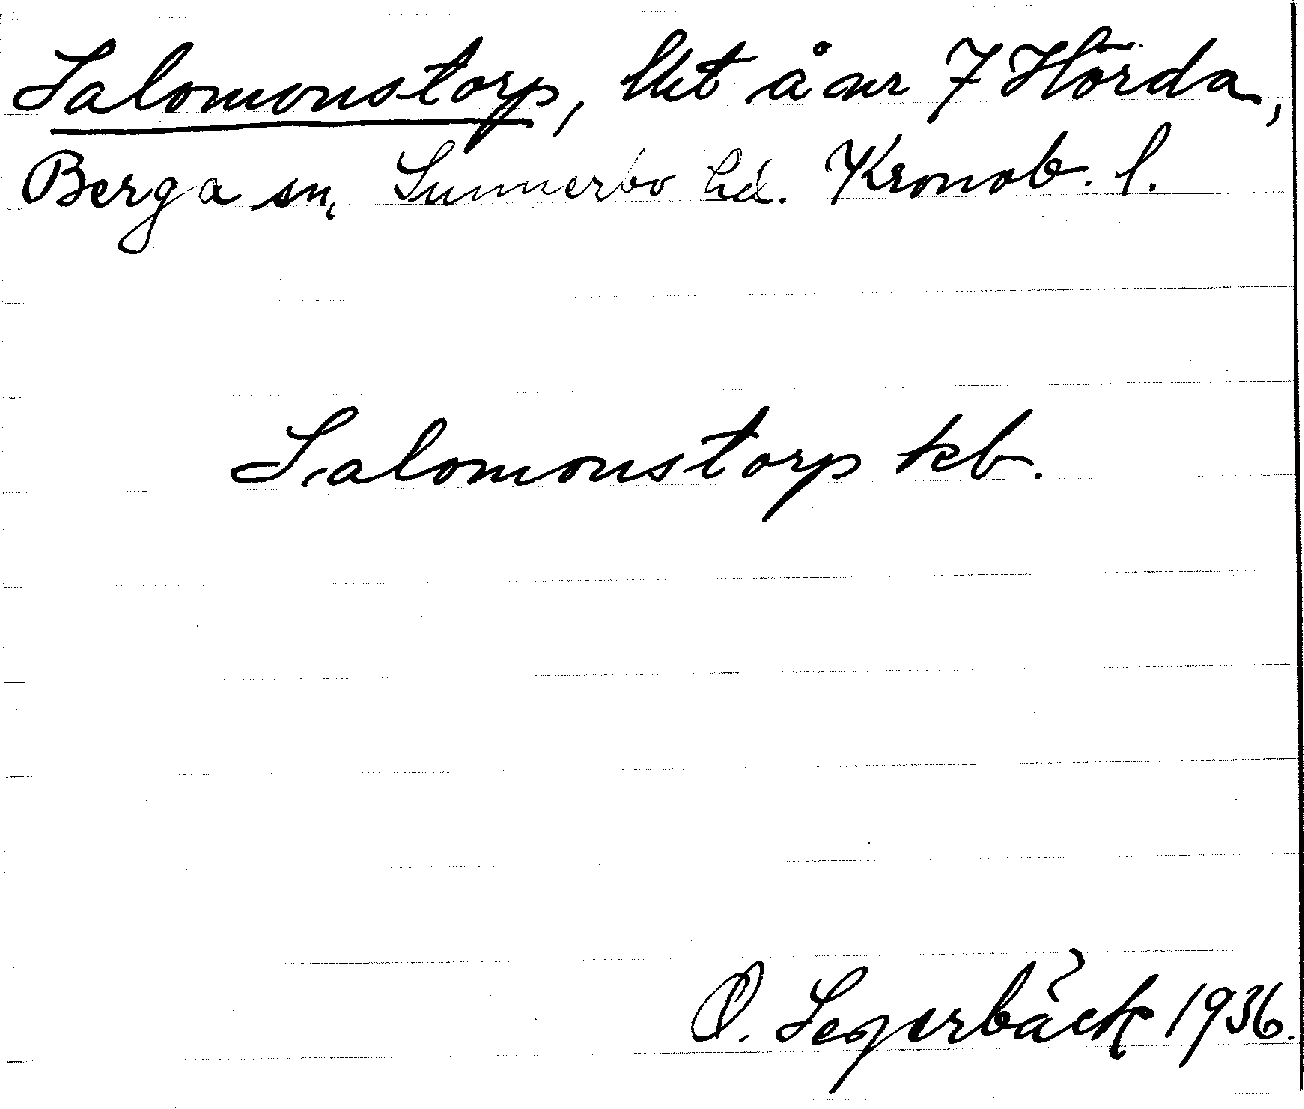 Salomonstorp, lht å nr 7 Hörda,
Berga sn, Sunnerbo hd. Kronob. l.
Salomonstorp kb.
O. Segerbäck 1936.